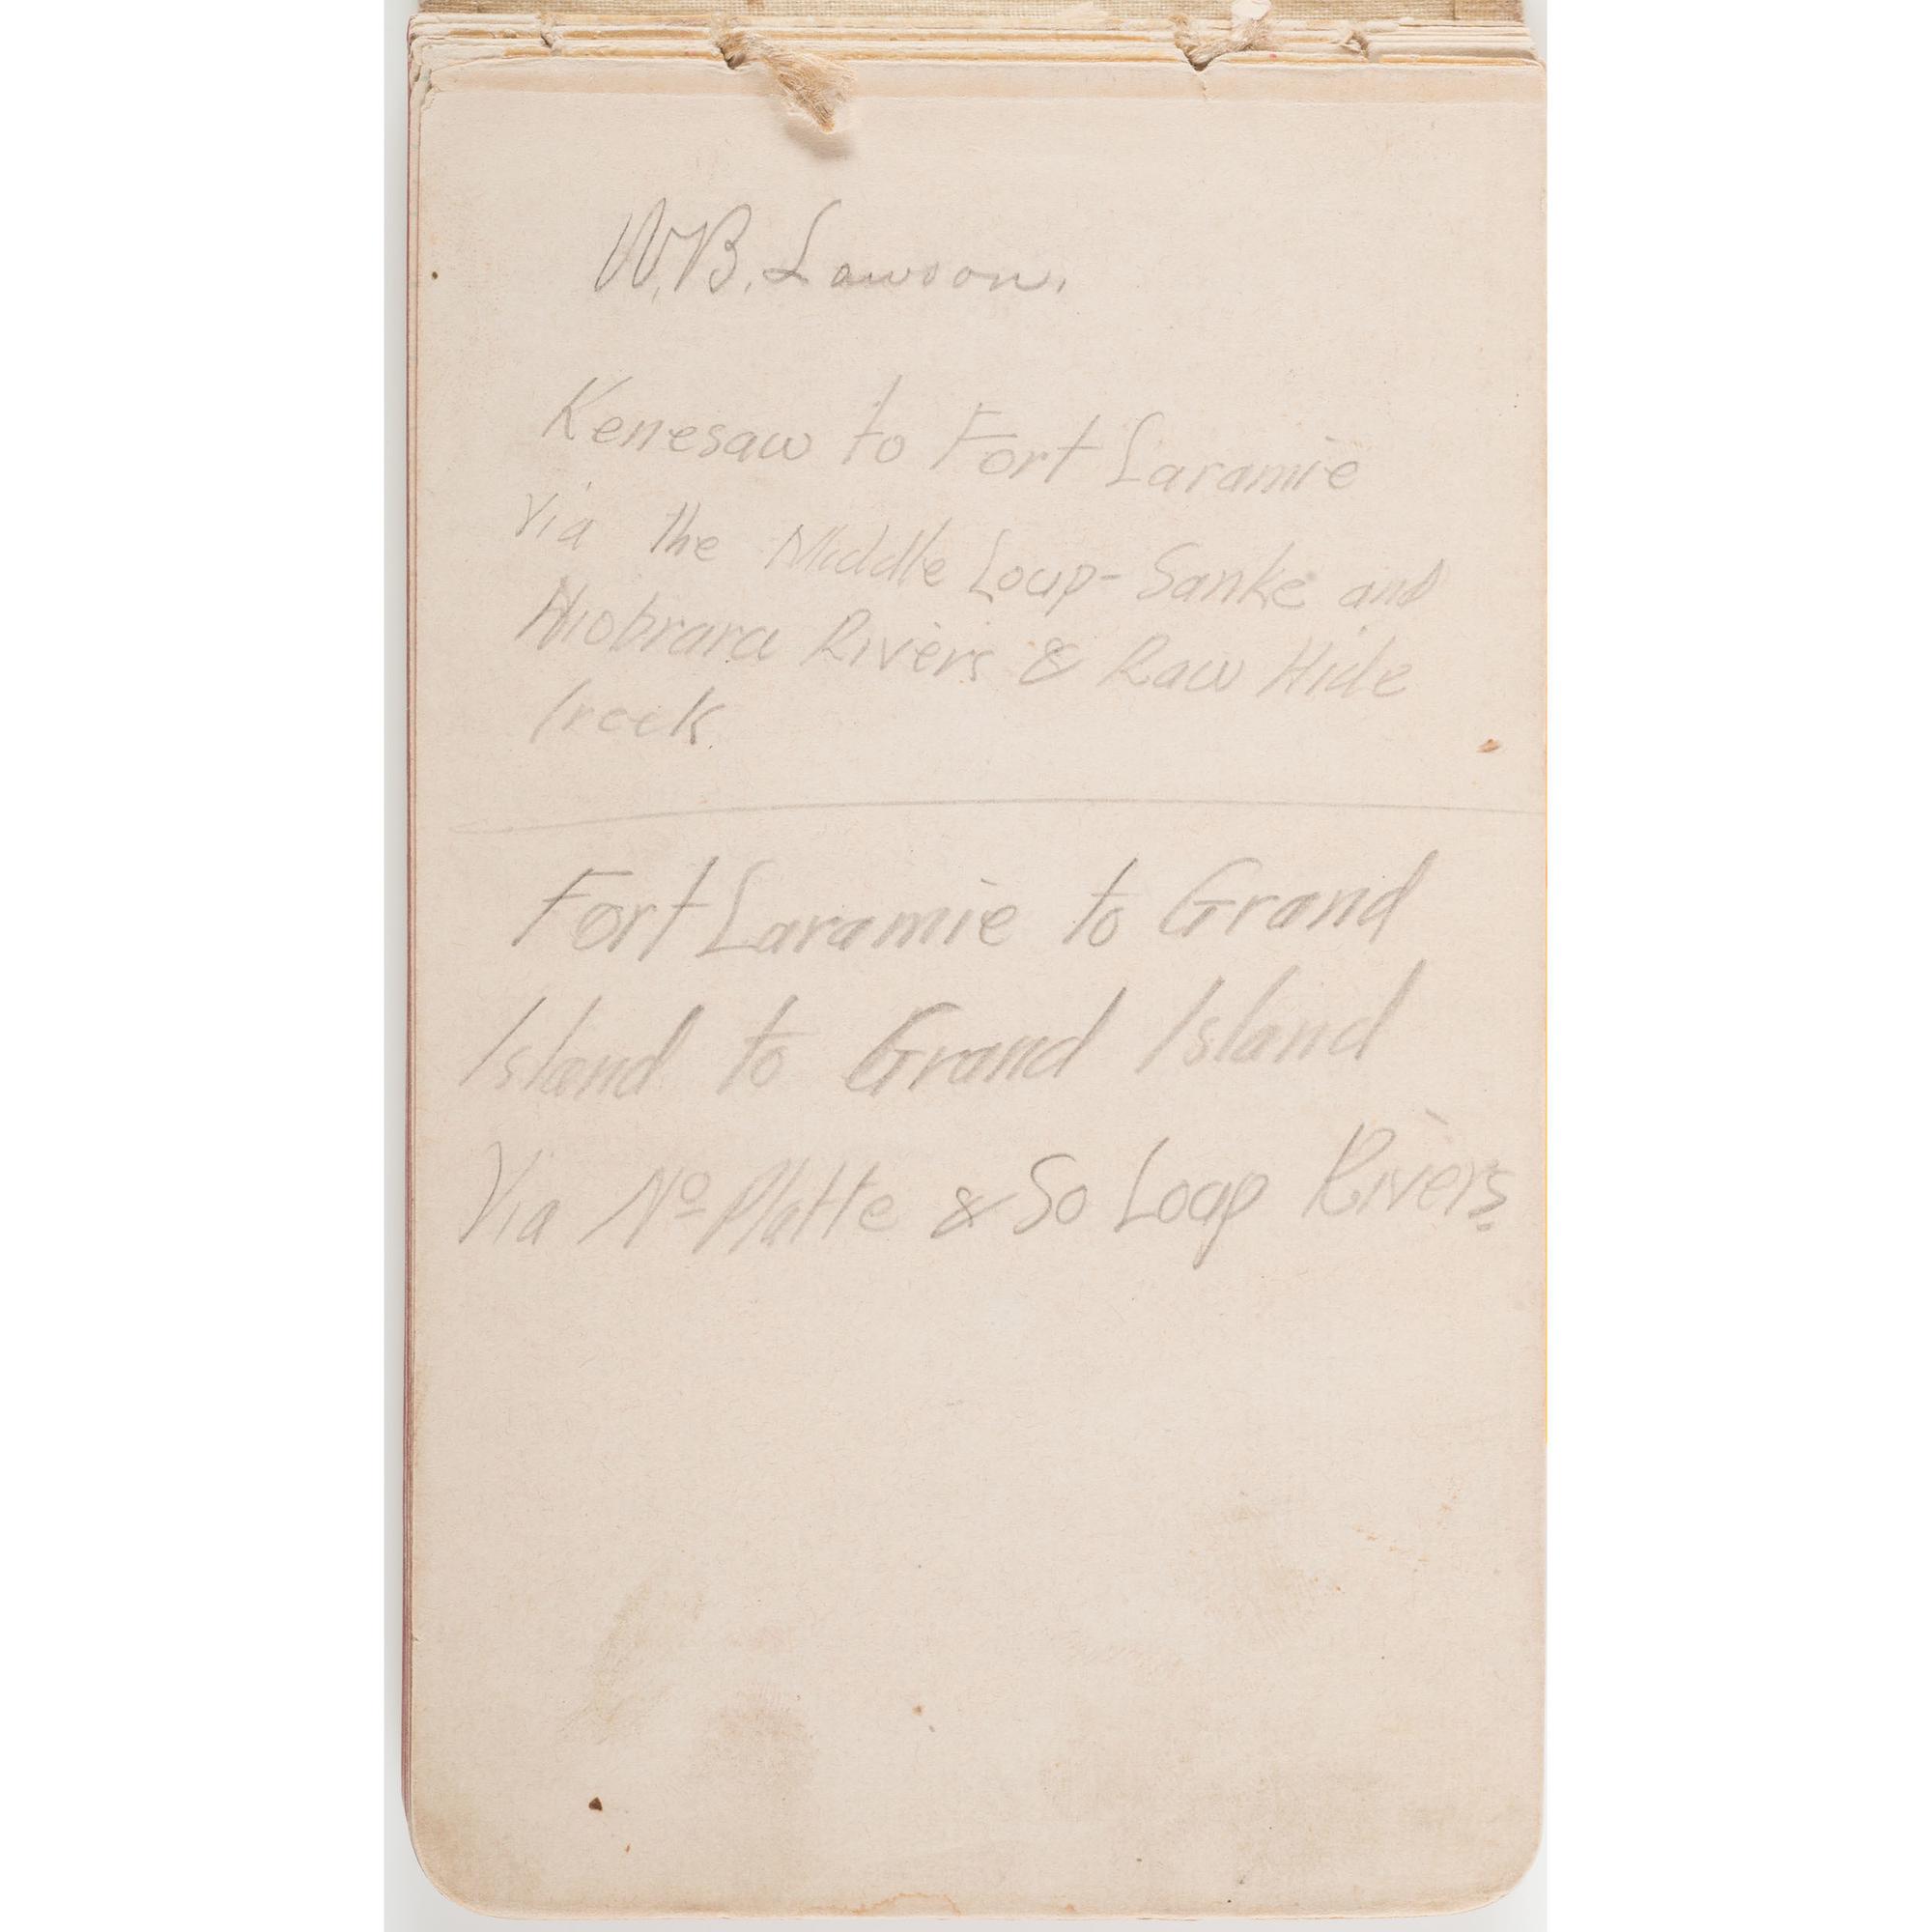 W.B. Lawson.
Kenesaw to Fort Laramie
Via the Middle Loup- Sanke and
Niobrara Rivers & Raw Hide
Creek.
Fort Laramie to Grand
Island to Grand Island
Via No Platte & So Loup Rivers